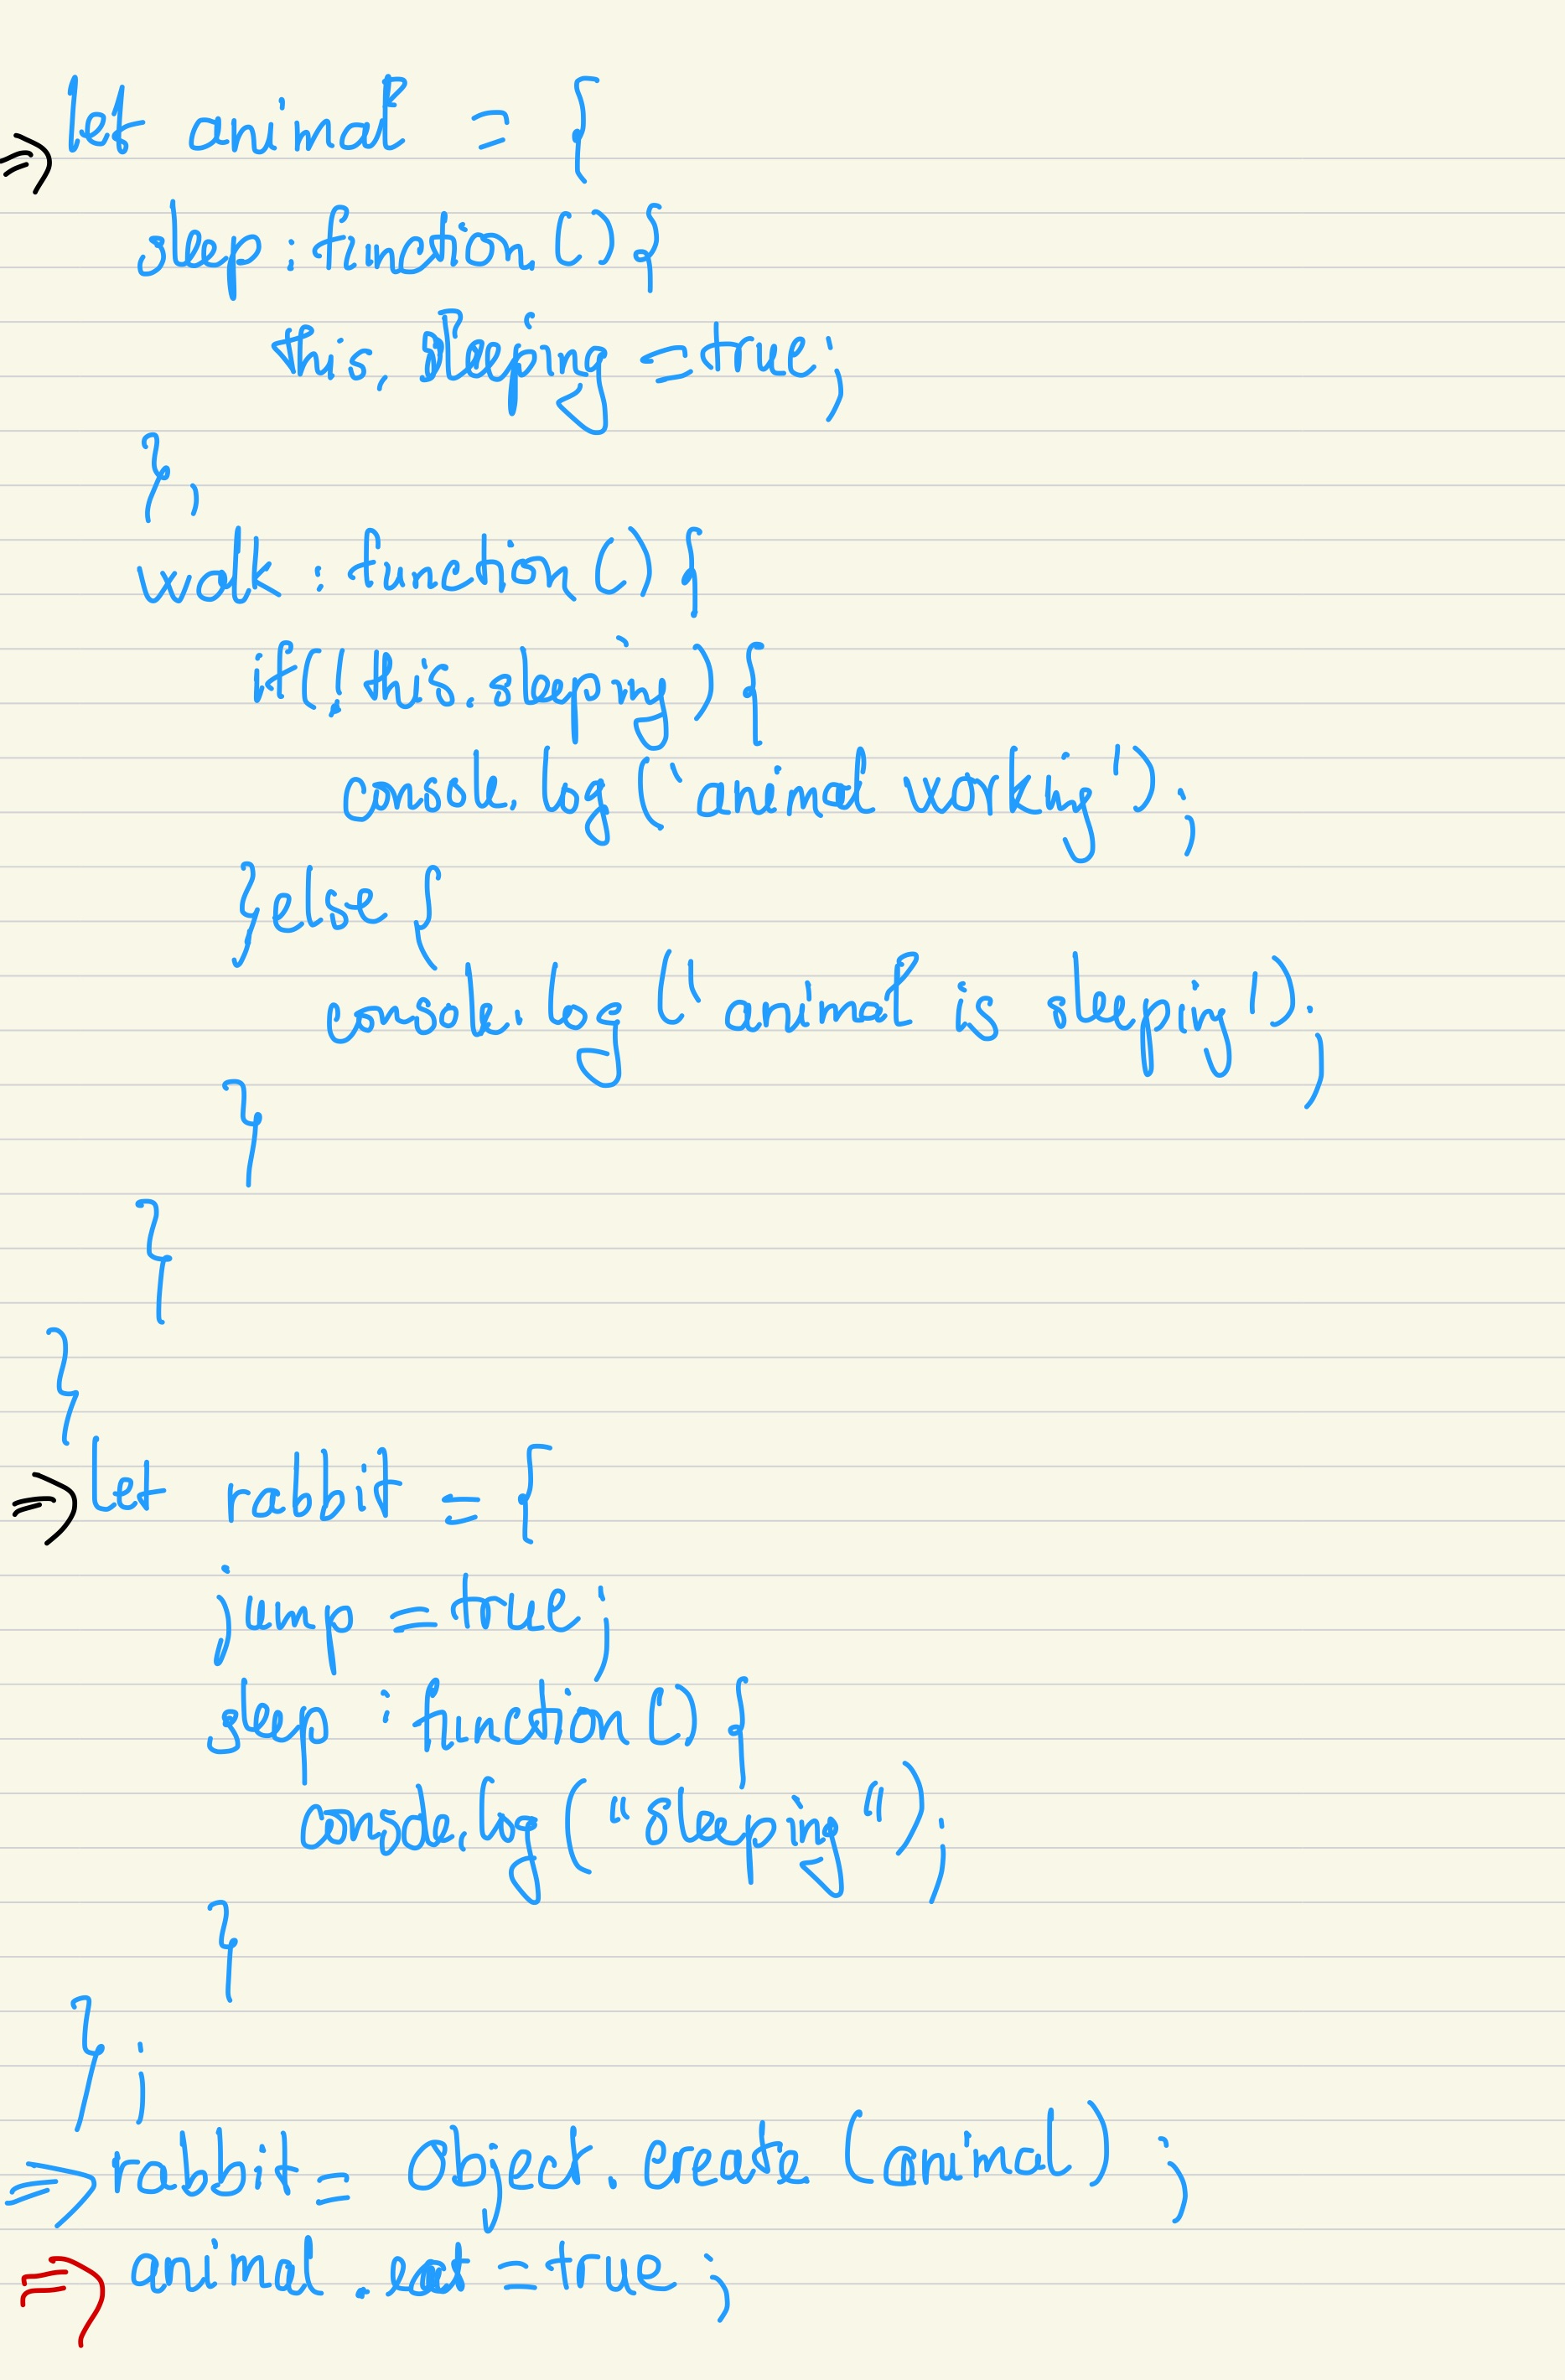 ⇒ let animal = {
sleep : function () {
this. sleeping = true;
},
walk : function () {
if (! this. sleeping) {
console. log ('animal working');
} else {
console. log ('animal is sleeping');
}
}
}
⇒ let rabbit = {
jump = true;
sleep : function () {
console.log ("sleeping");
}
};
⇒ rabbit = Object. create (animal) ;
⇒ animal. eat = true ;